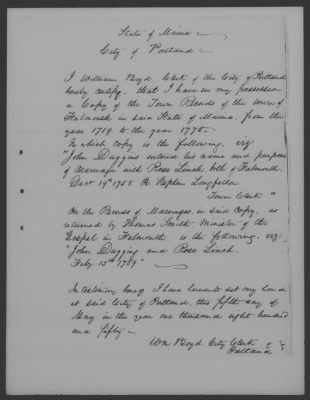 State of Maine
City of Portland
I William Boyd Clerk of the City of Portland
hereby certify, that I have in my possession
a Copy of the Town Records of the town of
Falmouth in said State of Maine, from the
year 1719 to the year 1775.
In which copy is the following, viz
"John Duggins entered his name and purpose
of Marriage with Rose Linch both of Falmouth.
Decr 19th 1758 Pr Stephen Longfellow
Town Clerk"
On the Records of Marriages, in said Copy, as
returned by Thomas Smith Minister of the
Gospel in Falmouth, is the following, viz:
"John Dugging and Rose Linch.
Feby 15th 1759"
In testimony hereof I have hereunto set my hand
at said City of Portland, this fifth day of
May in the year one thousand eight hundred
and fifty
Wm Boyd City Clerk of
Portland